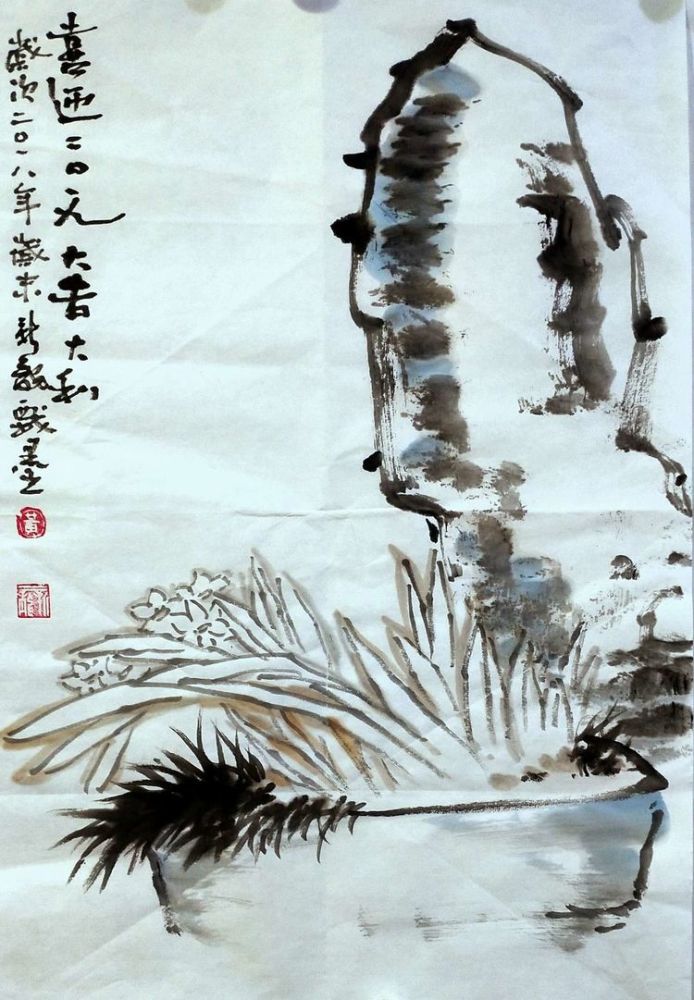 喜迎二〇一九大吉大利
歲次二〇一八年歲末新龍戲墨
黃